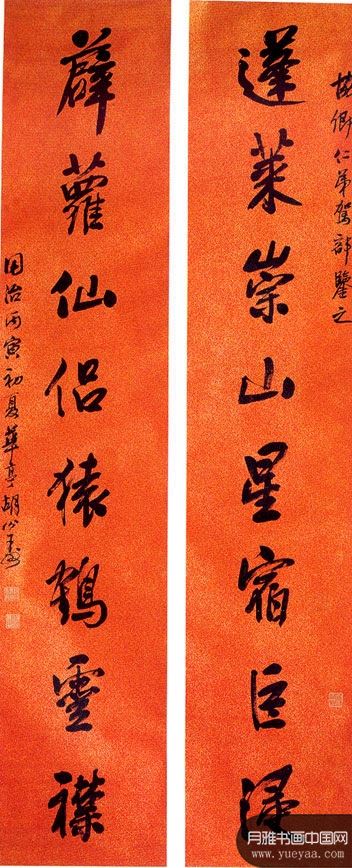 楳卿仁弟駕部鑒之
蓬萊崇山星宿巨浸
薜蘿仙侣猿鶴靈襟
同治丙寅初夏華亭胡公壽
月雅书画中国网
www.yueyaa.com